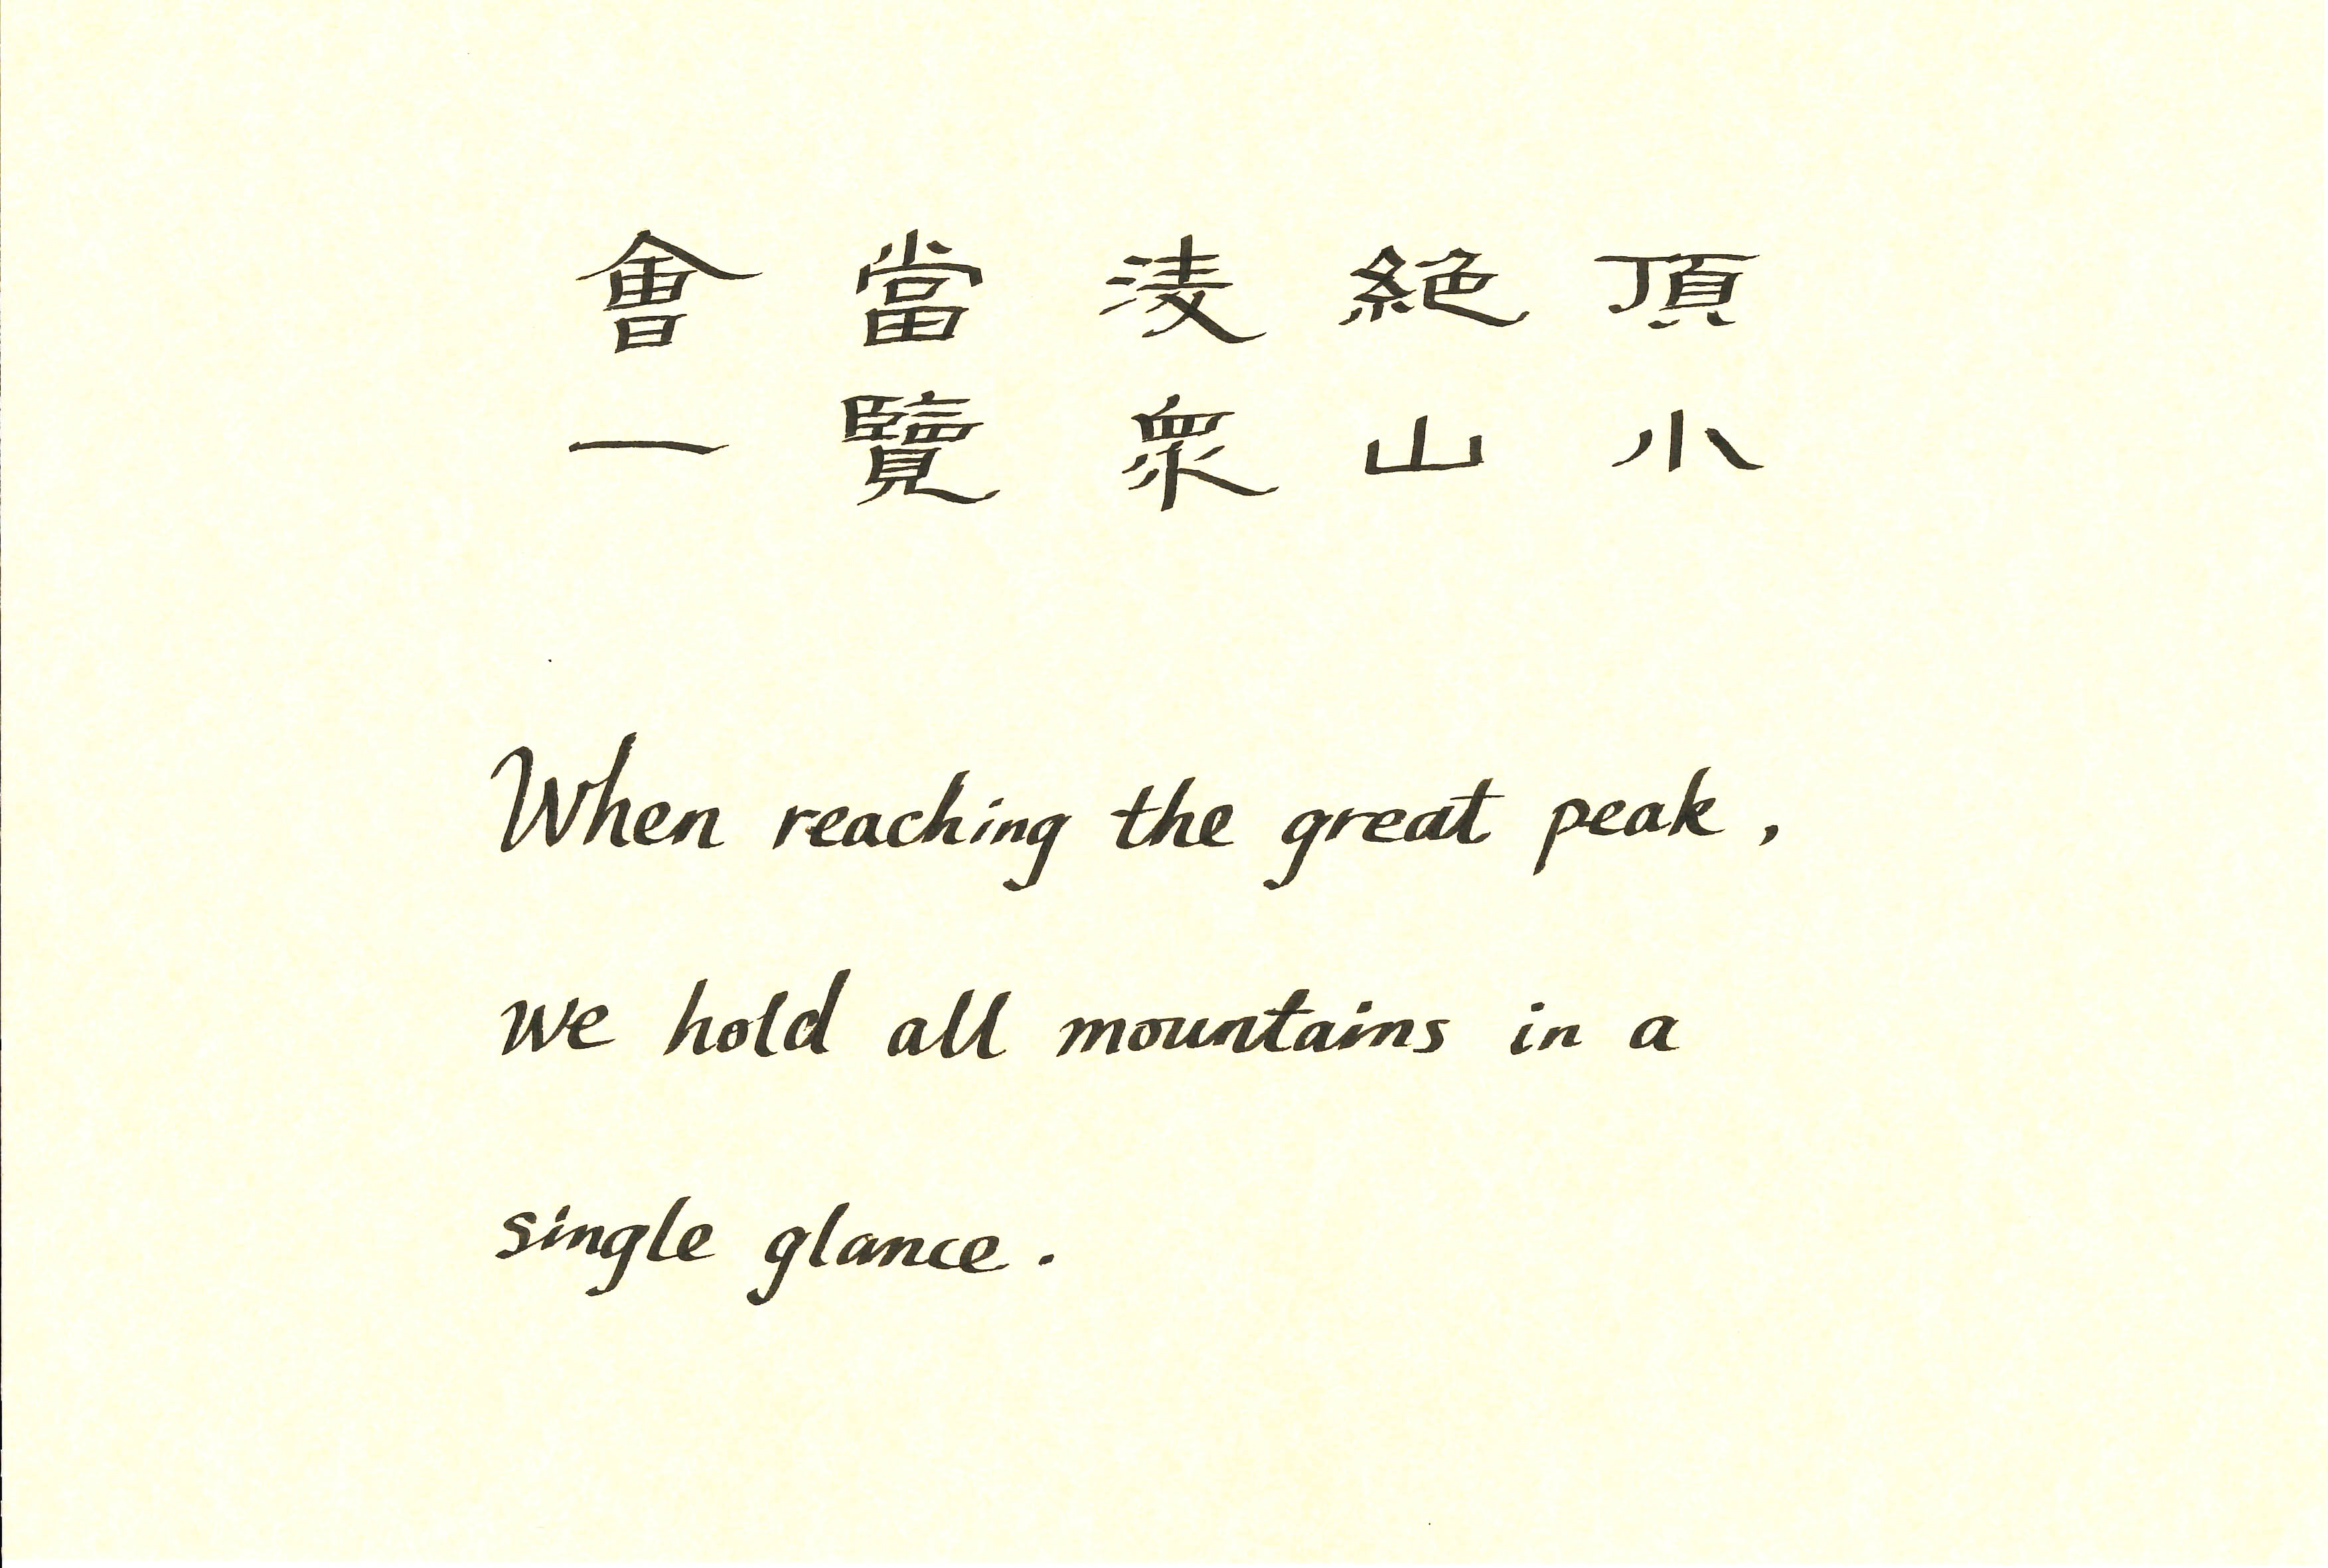 會當淩絕頂
一覽眾山小
When reaching the great peak,
we hold all mountains in a
single glance.